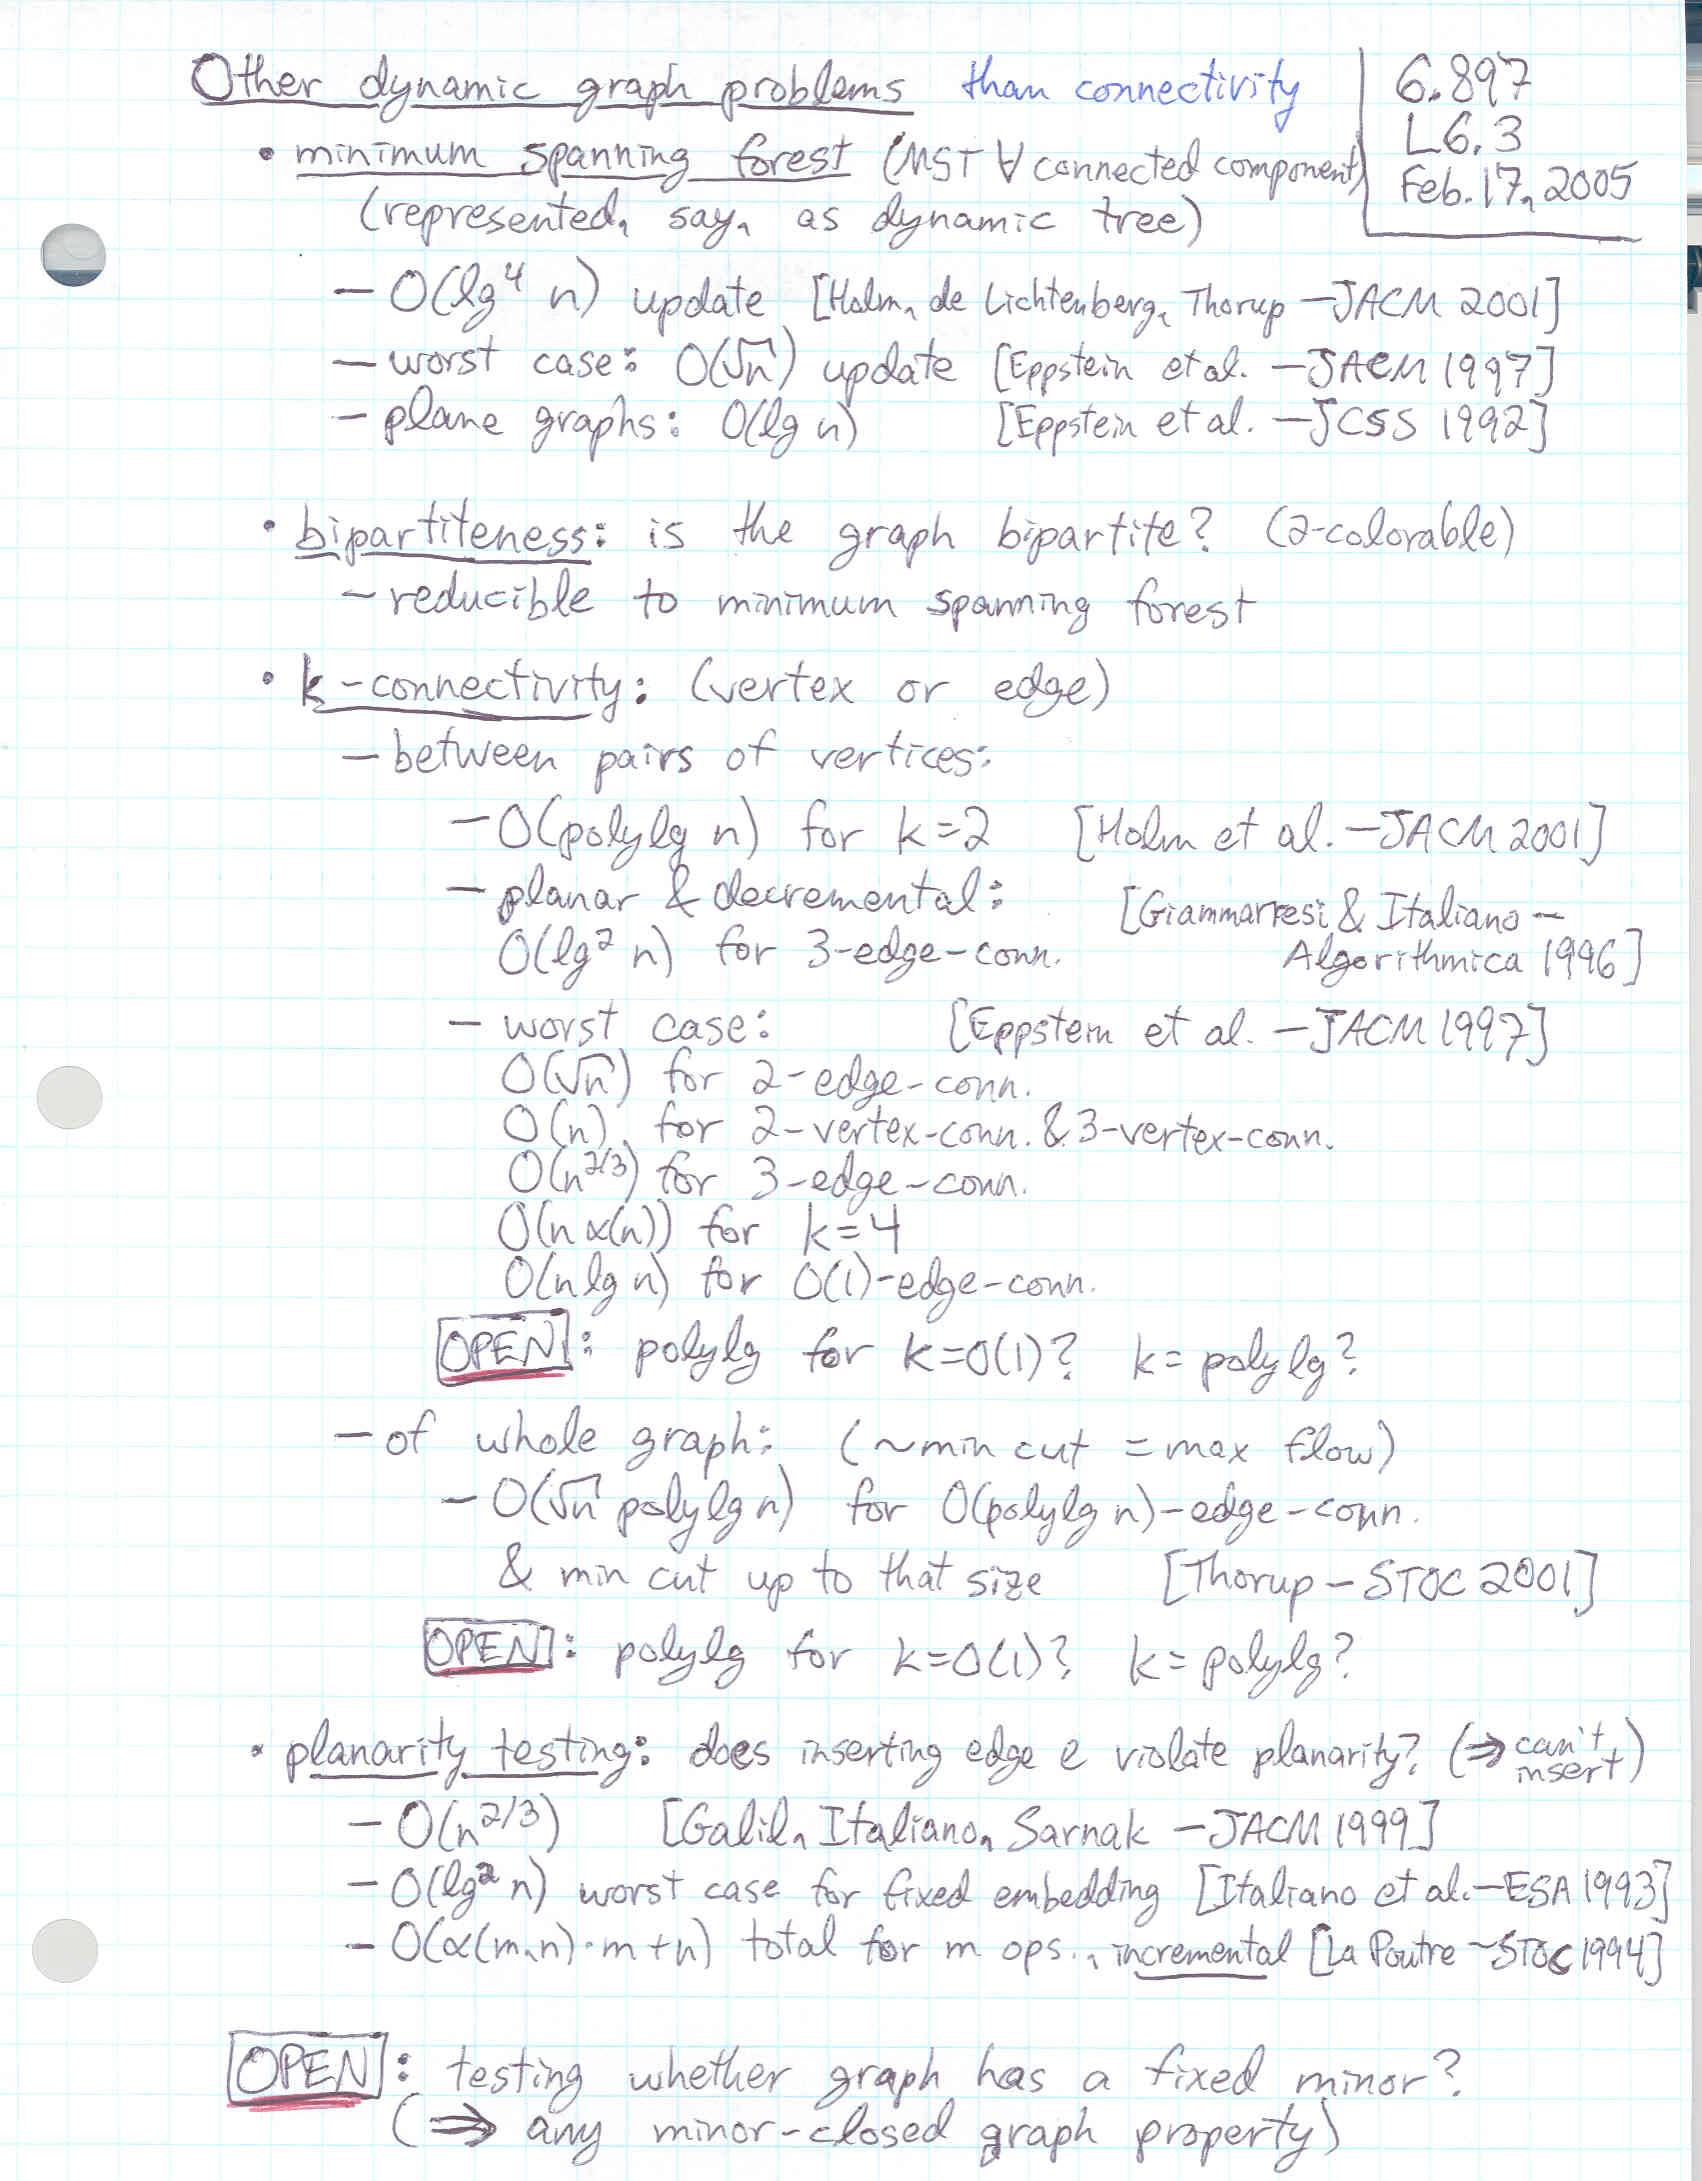 Other dynamic graph problems than connectivity
6.897
L6.3
Feb. 17, 2005
• minimum spanning forest (MST ∀ connected component)
(represented, say, as dynamic tree)
— O(lg⁴ n) update [Holm, de Lichtenberg, Thorup — JACM 2001]
— worst case: O(√n) update [Eppstein et al. — JACM 1997]
— plane graphs: O(lg n) [Eppstein et al. — JCSS 1992]
• bipartiteness: is the graph bipartite? (2-colorable)
— reducible to minimum spanning forest
• k-connectivity: (vertex or edge)
— between pairs of vertices:
— O(polylg n) for k=2 [Holm et al. — JACM 2001]
— planar & decremental: [Giammarresi & Italiano —
O(lg² n) for 3-edge-conn. Algorithmica 1996]
— worst case: [Eppstein et al. — JACM 1997]
O(√n) for 2-edge-conn.
O(n) for 2-vertex-conn. & 3-vertex-conn.
O(n^2/3) for 3-edge-conn.
O(n α(n)) for k=4
O(n lg n) for O(1)-edge-conn.
OPEN: polylg for k=O(1)? k=polylg?
— of whole graph: (~min cut = max flow)
— O(√n polylg n) for O(polylg n)-edge-conn.
& min cut up to that size [Thorup — STOC 2001]
OPEN: polylg for k=O(1)? k=polylg?
• planarity testing: does inserting edge e violate planarity? (⇒ can't insert)
— O(n^2/3) [Galil, Italiano, Sarnak — JACM 1999]
— O(lg² n) worst case for fixed embedding [Italiano et al. — ESA 1993]
— O(α(m,n)·m+n) total for m ops., incremental [La Poutre — STOC 1994]
OPEN: testing whether graph has a fixed minor?
(⇒ any minor-closed graph property)